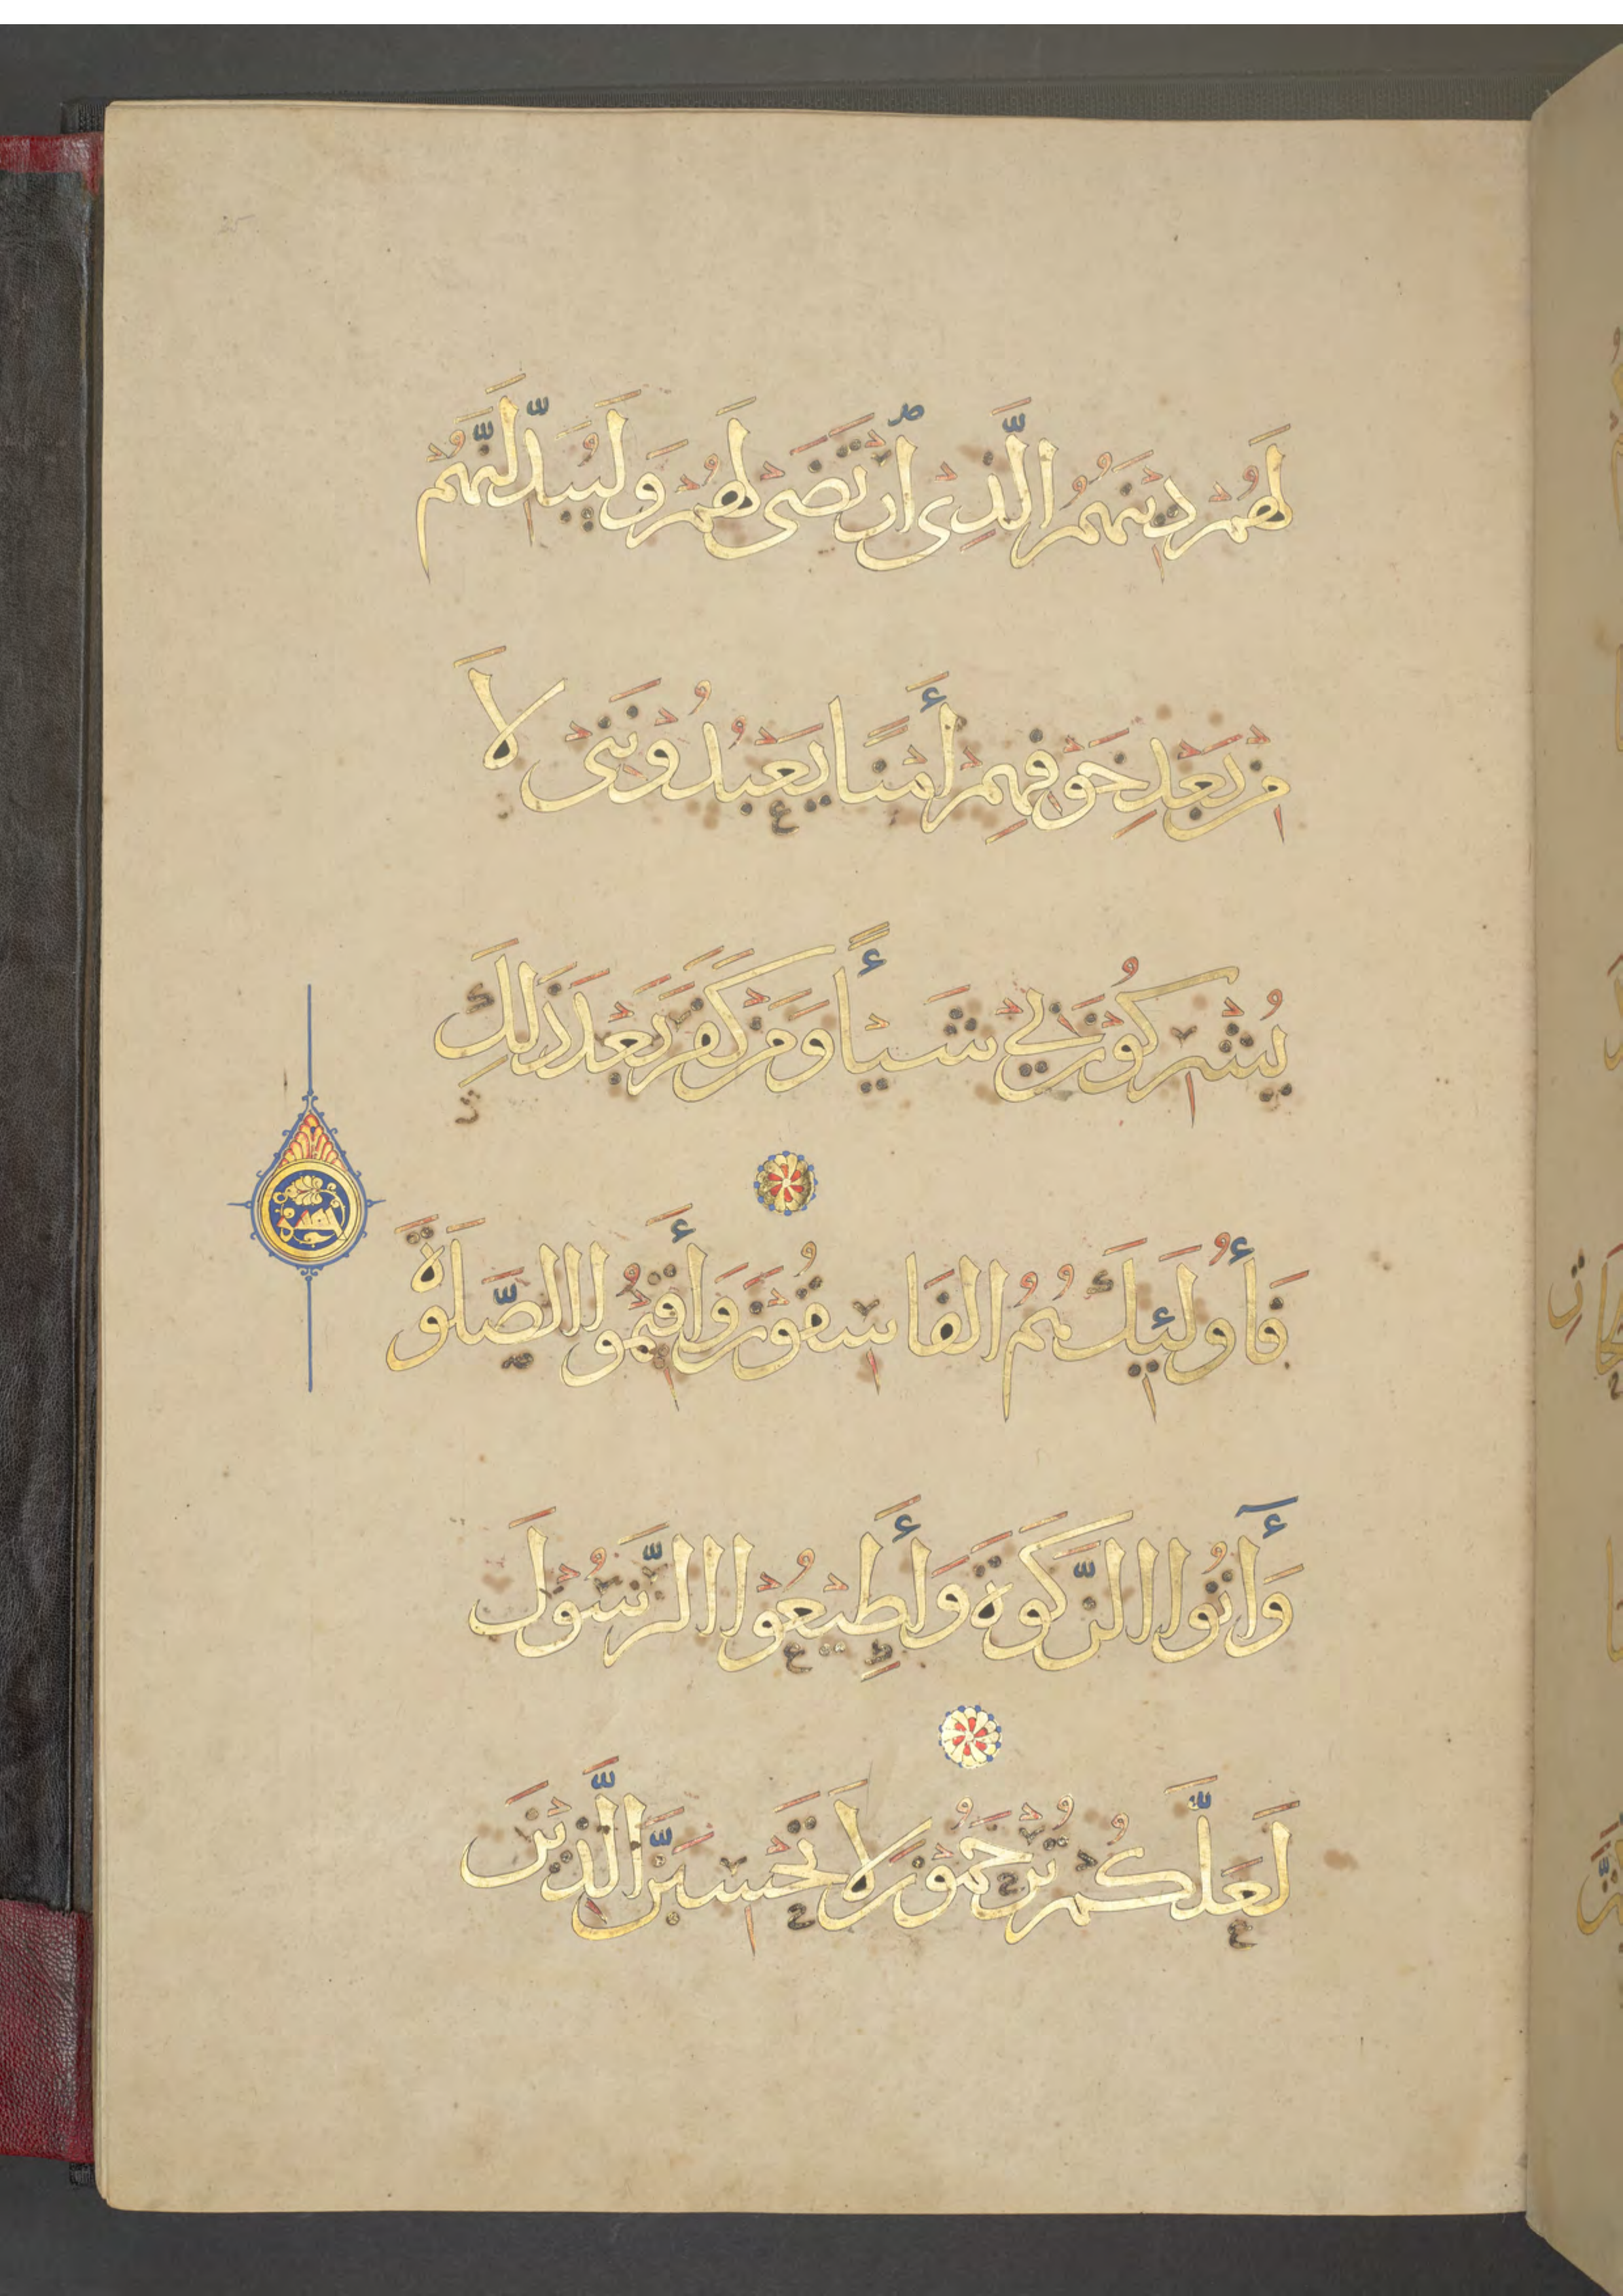 لَهُمْ دِيْنَهُمُ الَّذِي ارْتَضَى لَهُمْ وَلَيُبَدِّلَنَّهُمْ
مِنْ بَعْدِ خَوْفِهِمْ أَمْنًا يَعْبُدُوْنَنِيْ لَا
يُشْرِكُوْنَ بِيْ شَيْأً وَمَنْ كَفَرَ بَعْدَ ذَلِكَ
فَأُولَئِكَ هُمُ الفَاسِقُوْنَ وَأَقِيْمُوا الصَّلَوةَ
وَآتُوا الزَّكَوةَ وَأَطِيْعُوْا الرَّسُوْلَ
لَعَلَّكُمْ تُرْحَمُوْنَ لَا تَحْسِبَنَّ الَّذِيْنَ